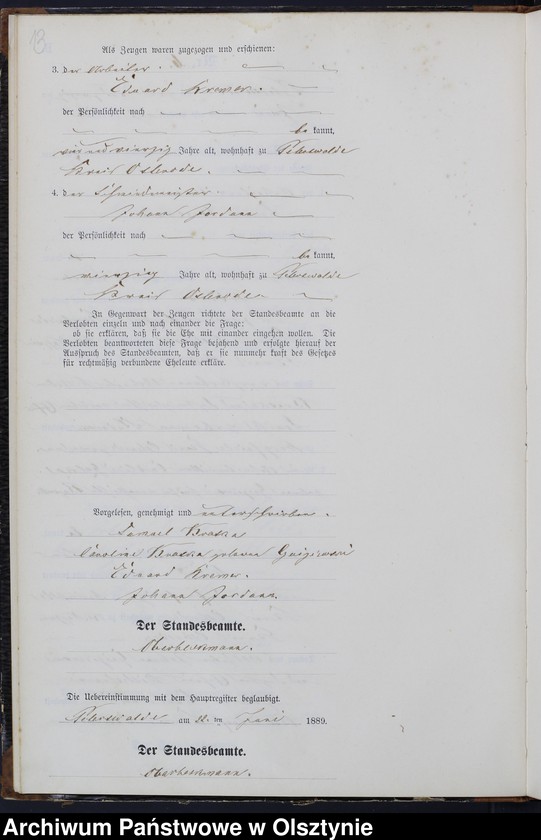 13
Als Zeugen waren zugezogen und erschienen:
3. der Arbeiter
Eduard Kremer.
der Persönlichkeit nach
be kannt,
vierundvierzig Jahre alt, wohnhaft zu
Kreis Osterode.
4. der Schmiedemeister
Johann Jordann
der Persönlichkeit nach
be kannt,
vierzig Jahre alt, wohnhaft zu
Kreis Osterode.
In Gegenwart der Zeugen richtete der Standesbeamte an die
Verlobten einzeln und nach einander die Frage:
ob sie erklären, daß sie die Ehe mit einander eingehen wollen. Die
Verlobten beantworteten diese Frage bejahend und erfolgte hierauf der
Ausspruch des Standesbeamten, daß er sie nunmehr kraft des Gesetzes
für rechtmäßig verbundene Eheleute erkläre.
Vorgelesen, genehmigt und unterschrieben.
Samuel
Caroline geboren
Eduard Kremer.
Johann Jordann.
Der Standesbeamte.
Die Uebereinstimmung mit dem Hauptregister beglaubigt.
am 22. ten Juni 1889.
Der Standesbeamte.
Archiwum Państwowe w Olsztynie